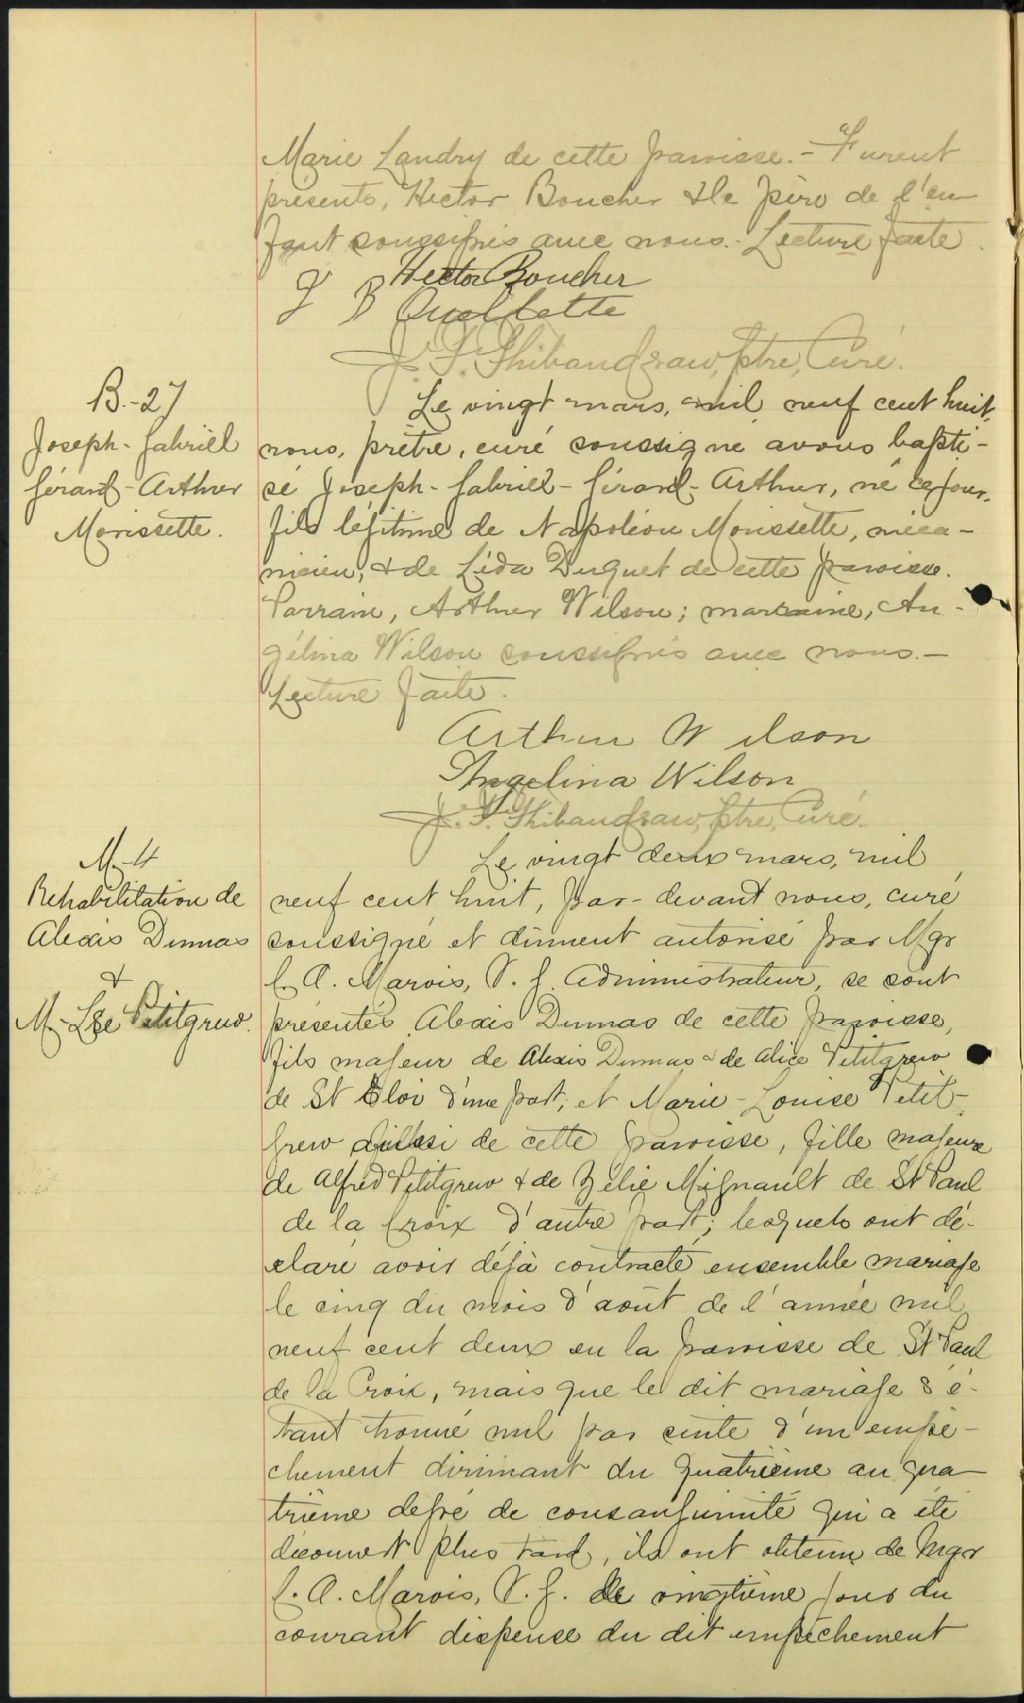 Marie Landry de cette paroisse. - Furent
présents, Hector Boucher & le père de l'en
fant soussignés avec nous. - Lecture faite.
Hector Boucher
J B Ouellette
J. F. Thibaudeau, Ptre, Curé.
B.-27
Joseph-Gabriel
Gérard-Arthur
Morissette.
Le vingt mars, mil neuf cent huit,
nous, prêtre, curé soussigné avons bapti-
sé Joseph-Gabriel-Gérard-Arthur, né ce jour,
fils légitime de Napoléon Morissette, méca-
nicien, & de Léda Duquet de cette paroisse.
Parrain, Arthur Wilson; marraine, An-
gélina Wilson soussignés avec nous. -
Lecture faite.
Arthur Wilson
Angelina Wilson
J. F. Thibaudeau, Ptre, Curé.
M-4
Réhabilitation de
Alexis Dumas
&
M-Lse Petitgrew.
Le vingt deux mars, mil
neuf cent huit, par-devant nous, curé
soussigné et dûment autorisé par Mgr
C. A. Marois, V. G. Administrateur, se sont
présentés Alexis Dumas de cette paroisse,
fils majeur de Alexis Dumas & de Alice Petitgrew
de St Eloi d'une part; et Marie-Louise Petit-
grew aussi de cette paroisse, fille majeure
de Alfred Petitgrew & de Zélie Mignault de St Paul
de la Croix d'autre part; lesquels ont dé-
claré avoir déjà contracté ensemble mariage
le cinq du mois d'août de l'année mil
neuf cent deux en la paroisse de St Paul
de la Croix, mais que le dit mariage s'é-
tant trouvé nul par suite d'un empê-
chement dirimant du quatrième au qua-
trième degré de consanguinité qui a été
découvert plus tard, ils ont obtenu de Mgr
C. A. Marois, V. G. le vingtième jour du
courant dispense du dit empêchement